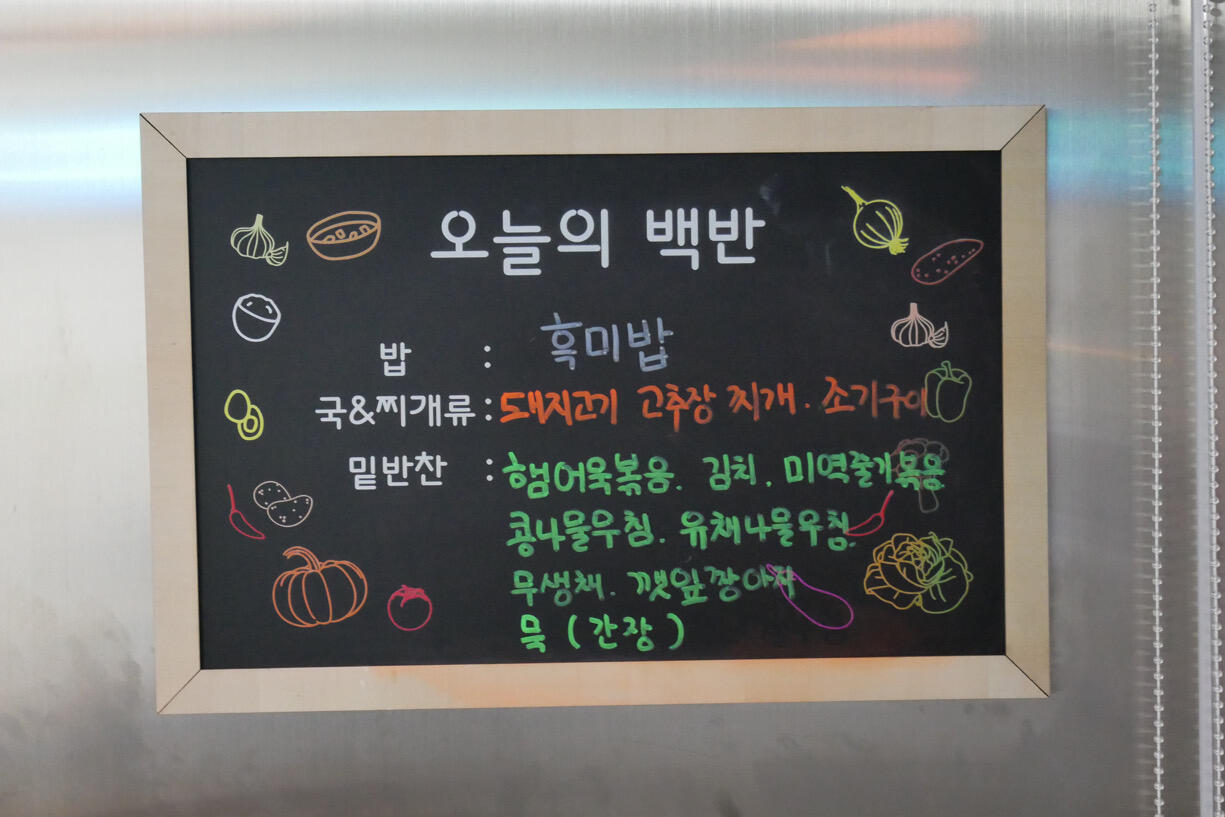 오늘의 백반
밥 : 흑미밥
국&찌개류 : 돼지고기 고추장 찌개. 조기구이
밑반찬 : 햄어묵볶음. 김치. 미역줄기볶음
콩나물무침. 유채나물무침.
무생채. 깻잎짱아찌
묵 (간장)